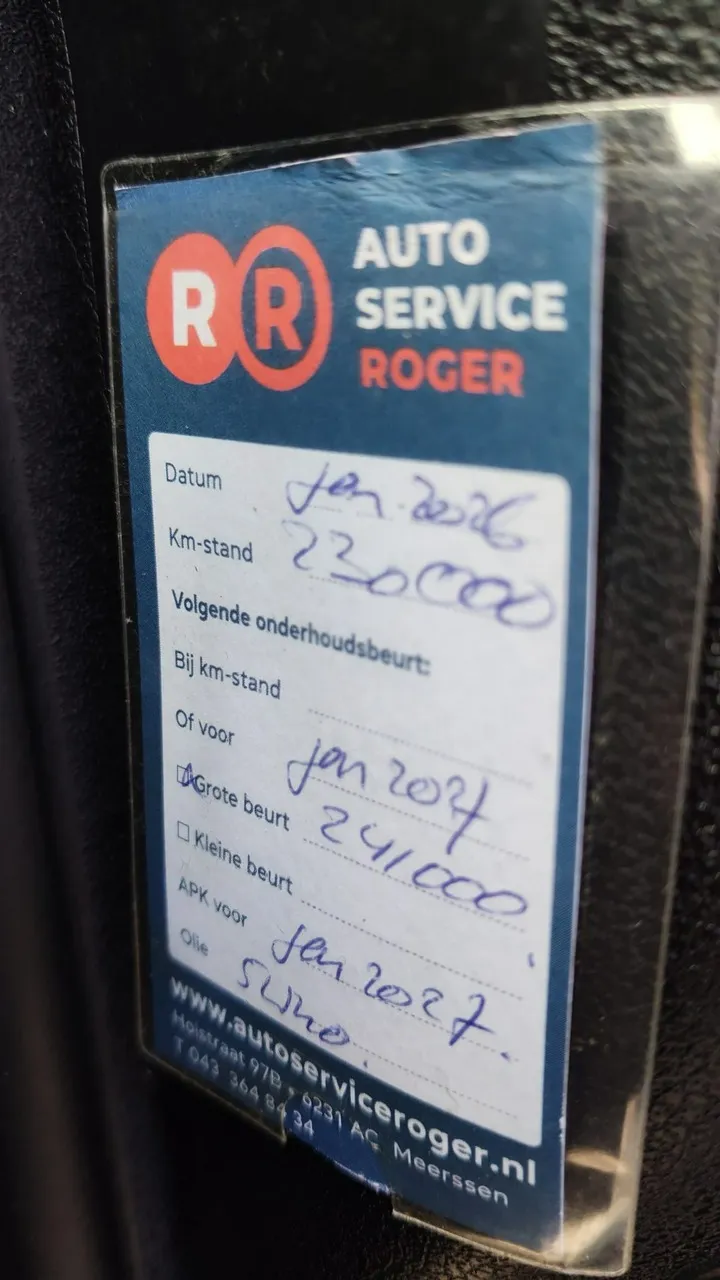 RR AUTO
SERVICE
ROGER
Datum jan. 2026
Km-stand 230000
Volgende onderhoudsbeurt:
Bij km-stand
Of voor jan 2027
Grote beurt 241000
Kleine beurt
APK voor jan 2027.
Olie 5W40.
www.autoserviceroger.nl
97B • 6231 AG Meerssen
T 043 364 34